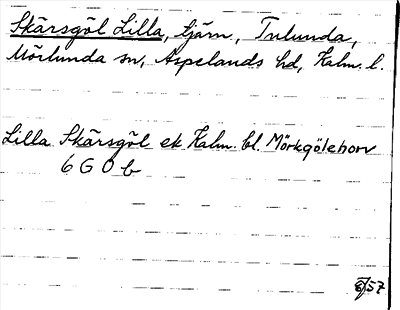 Skärsgöl Lilla, tjärn, Tulunda,
Mörlunda sn, Aspelands hd, Kalm. l.
Lilla Skärsgöl ek Kalm. bl. Mörkgölehorv
6 G 0 b
57